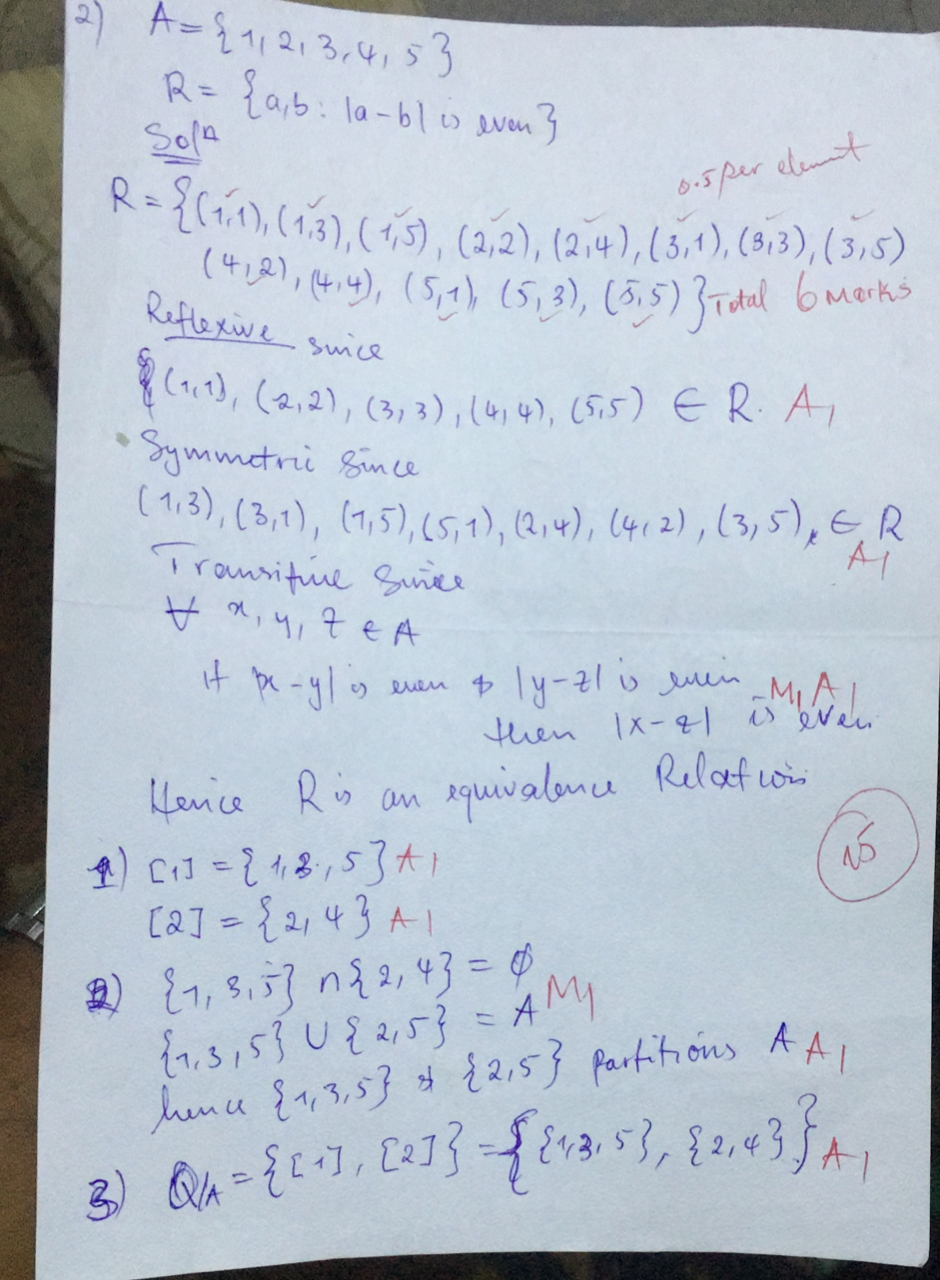 2) A = {1, 2, 3, 4, 5}
R = {a,b : |a-b| is even}
Solⁿ
0.5 per element
R = {(1,1), (1,3), (1,5), (2,2), (2,4), (3,1), (3,3), (3,5)
(4,2), (4,4), (5,1), (5,3), (5,5)} Total 6 marks
Reflexive since
(1,1), (2,2), (3,3), (4,4), (5,5) ∈ R. A1
Symmetric since
(1,3), (3,1), (1,5), (5,1), (2,4), (4,2), (3,5), ∈ R
A1
Transitive since
∀ x, y, z ∈ A
if |x-y| is even & |y-z| is even M1 A1
then |x-z| is even
Hence R is an equivalence Relation
15
1) [1] = {1,3,5} A1
[2] = {2, 4} A1
2) {1, 3, 5} ∩ {2, 4} = ∅
{1, 3, 5} ∪ {2, 5} = A M1
hence {1, 3, 5} & {2, 5} partitions A A1
3) Q/A = {[1], [2]} = {{1,3,5}, {2,4}} A1